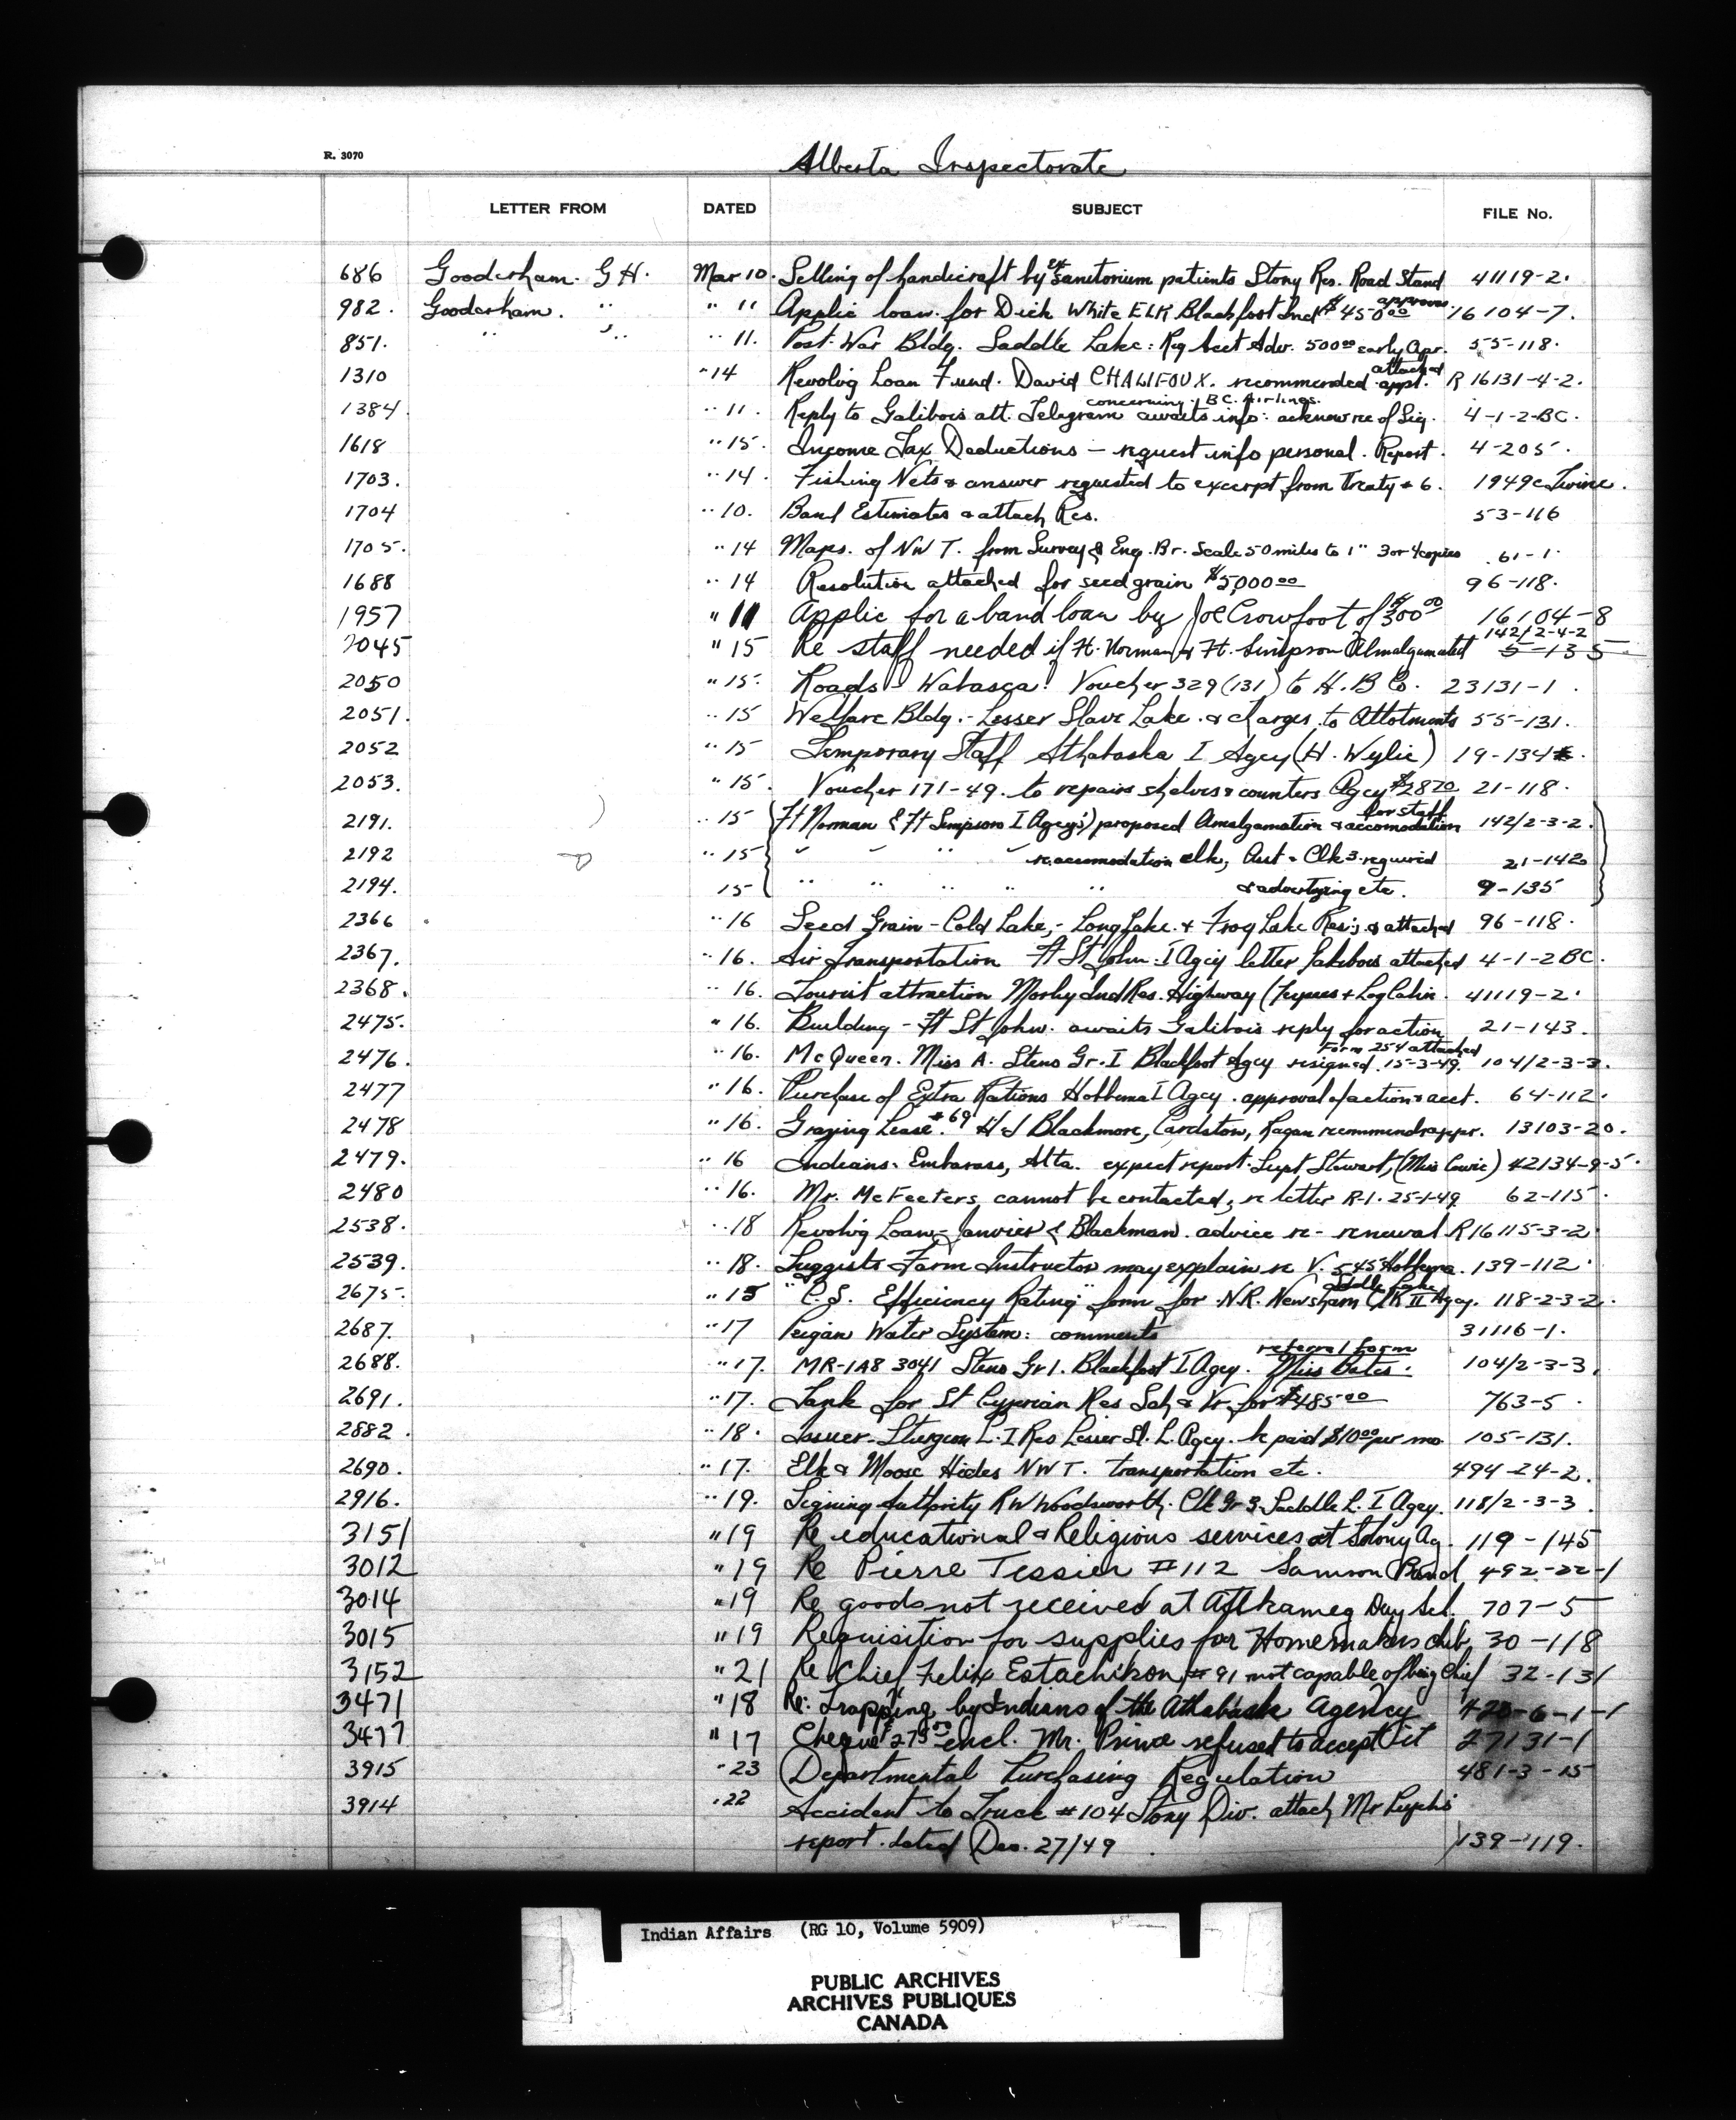 R. 3070
Alberta Inspectorate
LETTER FROM DATED SUBJECT FILE No.
686 Gooderham. G H. Mar 10. Selling of handicraft by ex Sanitorium patients Stony Res. Road Stand 41119-2.
982. Gooderham. " " 11 Applic loan for Dick White ELK Blackfoot Ind $450.00 approves 16104-7.
851. " " " 11. Post-War Bldg. Saddle Lake: Reg Acct Adv. 500.00 early Apr. 55-118.
1310 " 14 Revolvig Loan Fund. David CHALIFOUX. recommended attached appl. R 16131-4-2.
1384. " 11. Reply to Galibois att. Telegram concerning BC. Airlines. awaits info: 4-1-2-BC.
1618 " 15. Income Tax Deductions — request info personal. Report. 4-205.
1703. " 14. Fishing Nets & answer requested to excerpt from Treaty # 6. 1949c Twine.
1704 " 10. Band Estimates & attach Res. 53-116
1705. " 14 Maps. of NWT. from Survey & Eng. Br. Scale 50 miles to 1" 3 or 4 copies 61-1.
1688 " 14 Resolution attached for seed grain $5,000.00 96-118.
1957 " 11 Applic for a band loan by Joe Crowfoot of $300.00 16104-8
2045 " 15 Re staff needed if Ft. Norman & Ft. Simpson Almalgamated 142/2-4-2 5-135
2050 " 15. Roads - Wabasca. Voucher 329 (131) to H. B Co. 23131-1.
2051. " 15 Welfare Bldg. - Lesser Slave Lake. & charges to Allotments 55-131.
2052 " 15 Temporary Staff Athabaska I Agcy (H. Wylie) 19-134.
2053. " 15. Voucher 171-49. to repairs shelves & counters Agcy $28.70 21-118.
2191. " 15 Ft Norman & Ft Simpson I Agcy's) proposed Amalgamation & accomodation for staff 142/2-3-2.
2192 " 15 " " " " re accomodation clk, Asst & Clk 3 required 21-142
2194. 15 " " " " " & advertizing etc. 9-135
2366 " 16 Seed Grain - Cold Lake, - Long Lake & Frog Lake Res's & attached 96-118.
2367. " 16. Air Transportation Ft St John I Agcy letter Galibois attached 4-1-2 BC.
2368. " 16. Tourist attraction Morley Ind Res. Highway (Teepees + Log Cabin. 41119-2.
2475. " 16. Building - Ft St John. awaits Galibois reply for action 21-143.
2476. " 16. McQueen. Miss A. Steno Gr. I Blackfoot Agcy resigned 15-3-49. Form 254 attached 104/2-3-3.
2477 " 16. Purchase of Extra Rations Hobbema I Agcy. approval of action & acct. 64-112.
2478 " 16. Grazing Lease. #69 H J Blackmore, Cardston, Ragan recommends appr. 13103-20.
2479. " 16 Indians. Embarass, Alta. expect report. Supt Stewart, (Miss Cowie) 42134-9-5.
2480 " 16. Mr. McFeeters, cannot be contacted, re letter R-1. 25-1-49. 62-115.
2538. " 18 Revolvig Loan - Janvier & Blackman. advice re - renewal R16115-3-2.
2539. " 18. Suggests Farm Instructor may explain re V. 545 Hobbema. 139-112.
2675. " 15 "C. S. Efficiency Rating" form for N.R. Newsham Clk II Saddle Lake Agcy. 118-2-3-2.
2687. " 17 Peigan Water System: comments 31116-1.
2688. " 17. MR-1A8 3041 Steno Gr 1. Blackfoot I Agcy. referral form Miss Bates. 104/2-3-3.
2691. " 17. Tank for St Cyprian Res Sch & Vr. for $485.00 763-5.
2882. " 18. Issuer - Sturgeon L. I Res Lesser Sl. L. Agcy. be paid $10.00 per mo. 105-131.
2690. " 17. Elk & Moose Hides NWT. transportation etc. 494-24-2.
2916. " 19. Signing Authority R W Woodsworth. Clk Gr 3 Saddle L. I Agcy. 118/2-3-3.
3151 " 19 Re educational & Religious services at Stony Ag. 119-145
3012 " 19 Re Pierre Tessier #112 Samson Band 492-22-1
3014 " 19 Re goods not received at Atikameg Day Sch. 707-5
3015 " 19 Requisition for supplies for Homemakers club, 30-118
3152 " 21 Re Chief Felix Estachikon #91 not capable of being Chief 32-131
3471 " 18 Re: Trapping by Indians of the Athabaska Agency 420-6-1-1
3477 " 17 Cheque encl. Mr. Prince refused to accept it 27131-1
3915 " 23 Departmental Purchasing Regulation 481-3-15
3914 " 22 Accident to Truck #104 Stony Div. attach Mr
report. dated Dec. 27/49 139-119.
Indian Affairs (RG 10, Volume 5909)
PUBLIC ARCHIVES
ARCHIVES PUBLIQUES
CANADA